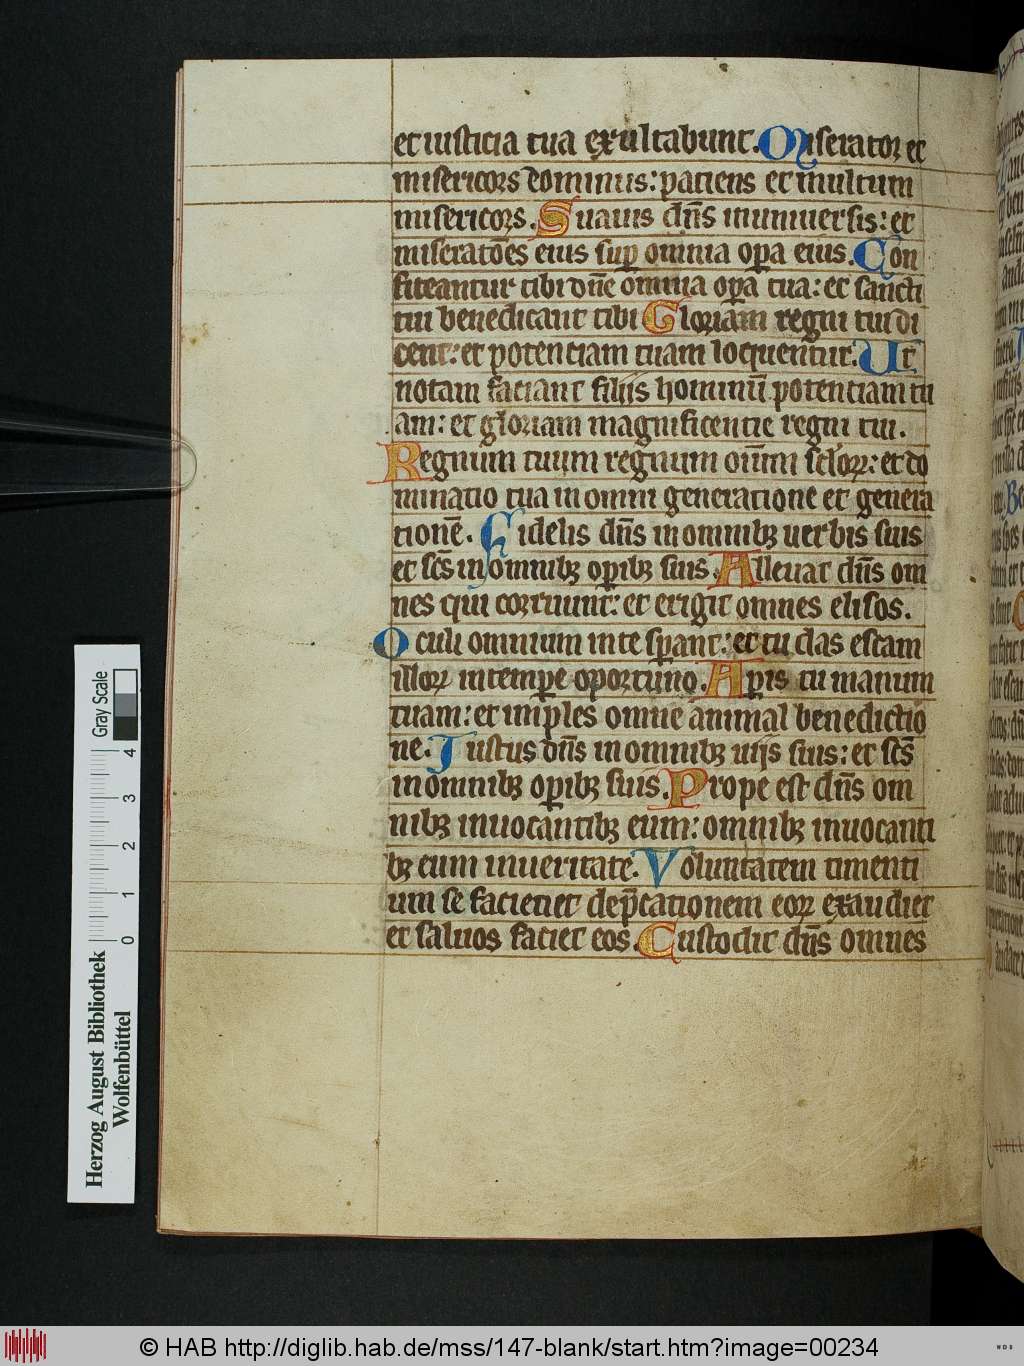 et iusticia tua exultabunt. Miserator et
misericors dominus: paciens et multum
misericors. Suauis dn̄s in uniuersis: et
miseratōes eius sup̄ omnia op̄a eius. Con
fiteantur tibi dn̄e omnia op̄a tua: et sancti
tui benedicant tibi Gloriam regni tui di
cent: et potenciam tuam loquentur. Ut
notam faciant filijs hominū potenciam tu
am: et gloriam magnificentie regni tui.
Regnum tuum regnum om̄m sc̄loꝝ: et do
minatio tua in omni generatione et genera
tionē. Fidelis dn̄s in omnibꝫ uerbis suis
et sc̄s in omnibꝫ op̄ibꝫ suis. Alleuat dn̄s om
nes qui corruunt: et erigit omnes elisos.
Oculi omnium in te sp̄ant: et tu das escam
illoꝝ in temp̄e oportuno. Ap̄is tu manum
tuam: et imples omne animal benedictio
ne. Iustus dn̄s in omnibꝫ uijs suis: et sc̄s
in omnibꝫ op̄ibꝫ suis. Prope est dn̄s om
nibꝫ inuocantibꝫ eum: omnibꝫ inuocanti
bꝫ eum in ueritate. Voluntatem timenti
um se faciet et dep̄cationem eoꝝ exaudiet
et saluos faciet eos. Custodit dn̄s omnes
Herzog August Bibliothek
Wolfenbüttel
0 1 2 3 4
Gray Scale
© HAB http://diglib.hab.de/mss/147-blank/start.htm?image=00234